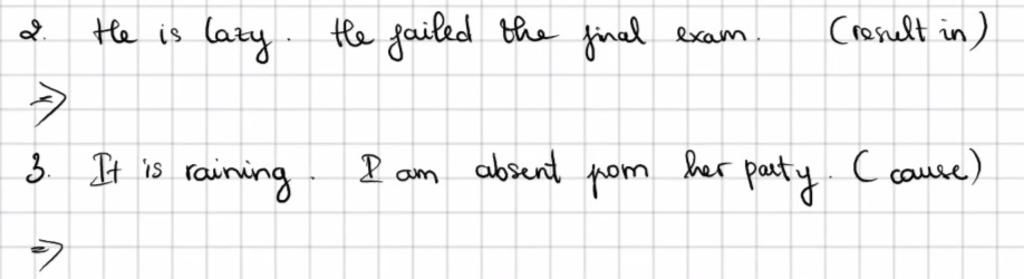 2. He is lazy. He failed the final exam. (result in)
=>
3. It is raining. I am absent from her party. (cause)
=>